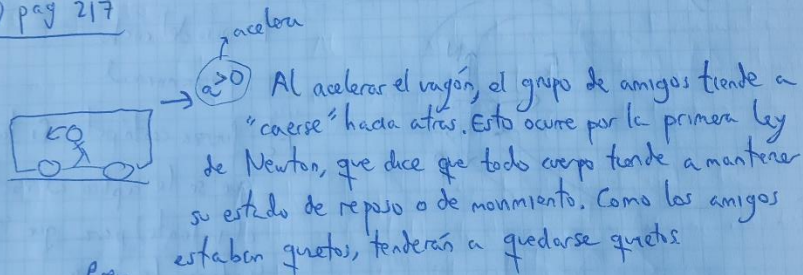 pag 217
acelera
a>0
Al acelerar el vagón, el grupo de amigos tiende a
"caerse" hacia atras. Esto ocurre por la primera ley
de Newton, que dice que todo cuerpo tiende a mantener
su estado de reposo o de movimiento. Como los amigos
estaban quietos, tenderán a quedarse quietos